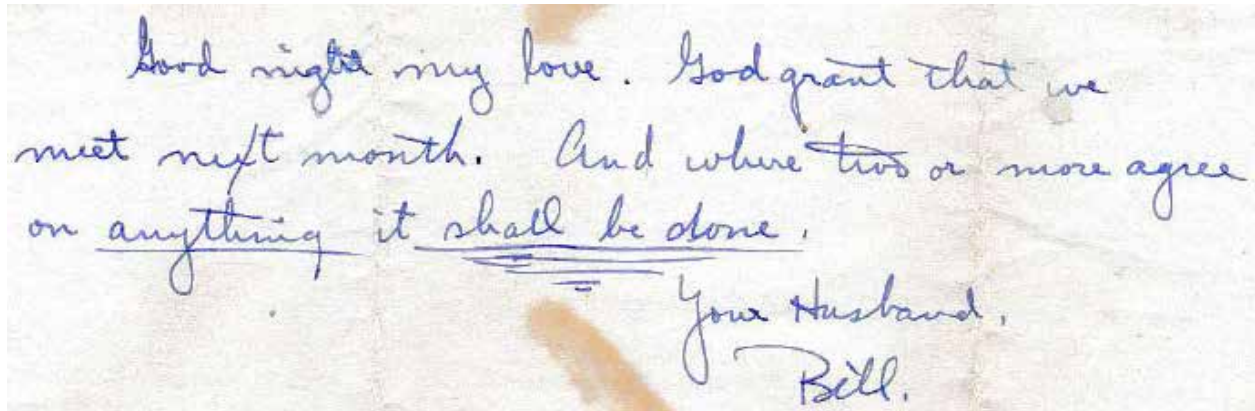 Good night my love. God grant that we
meet next month. And where two or more agree
on anything it shall be done.
Your Husband,
Bill.